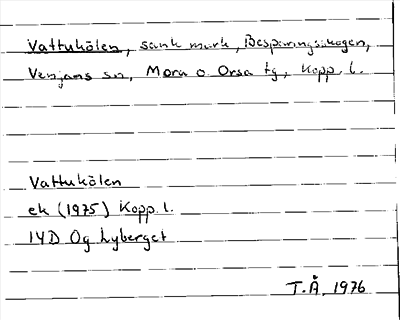 Vattukölen, sank mark, Besparingsskogen,
Venjans sn, Mora o Orsa tg, Kopp. l.
Vattukölen
ek (1975) Kopp. l.
14D Og Lyberget
T.Å. 1976